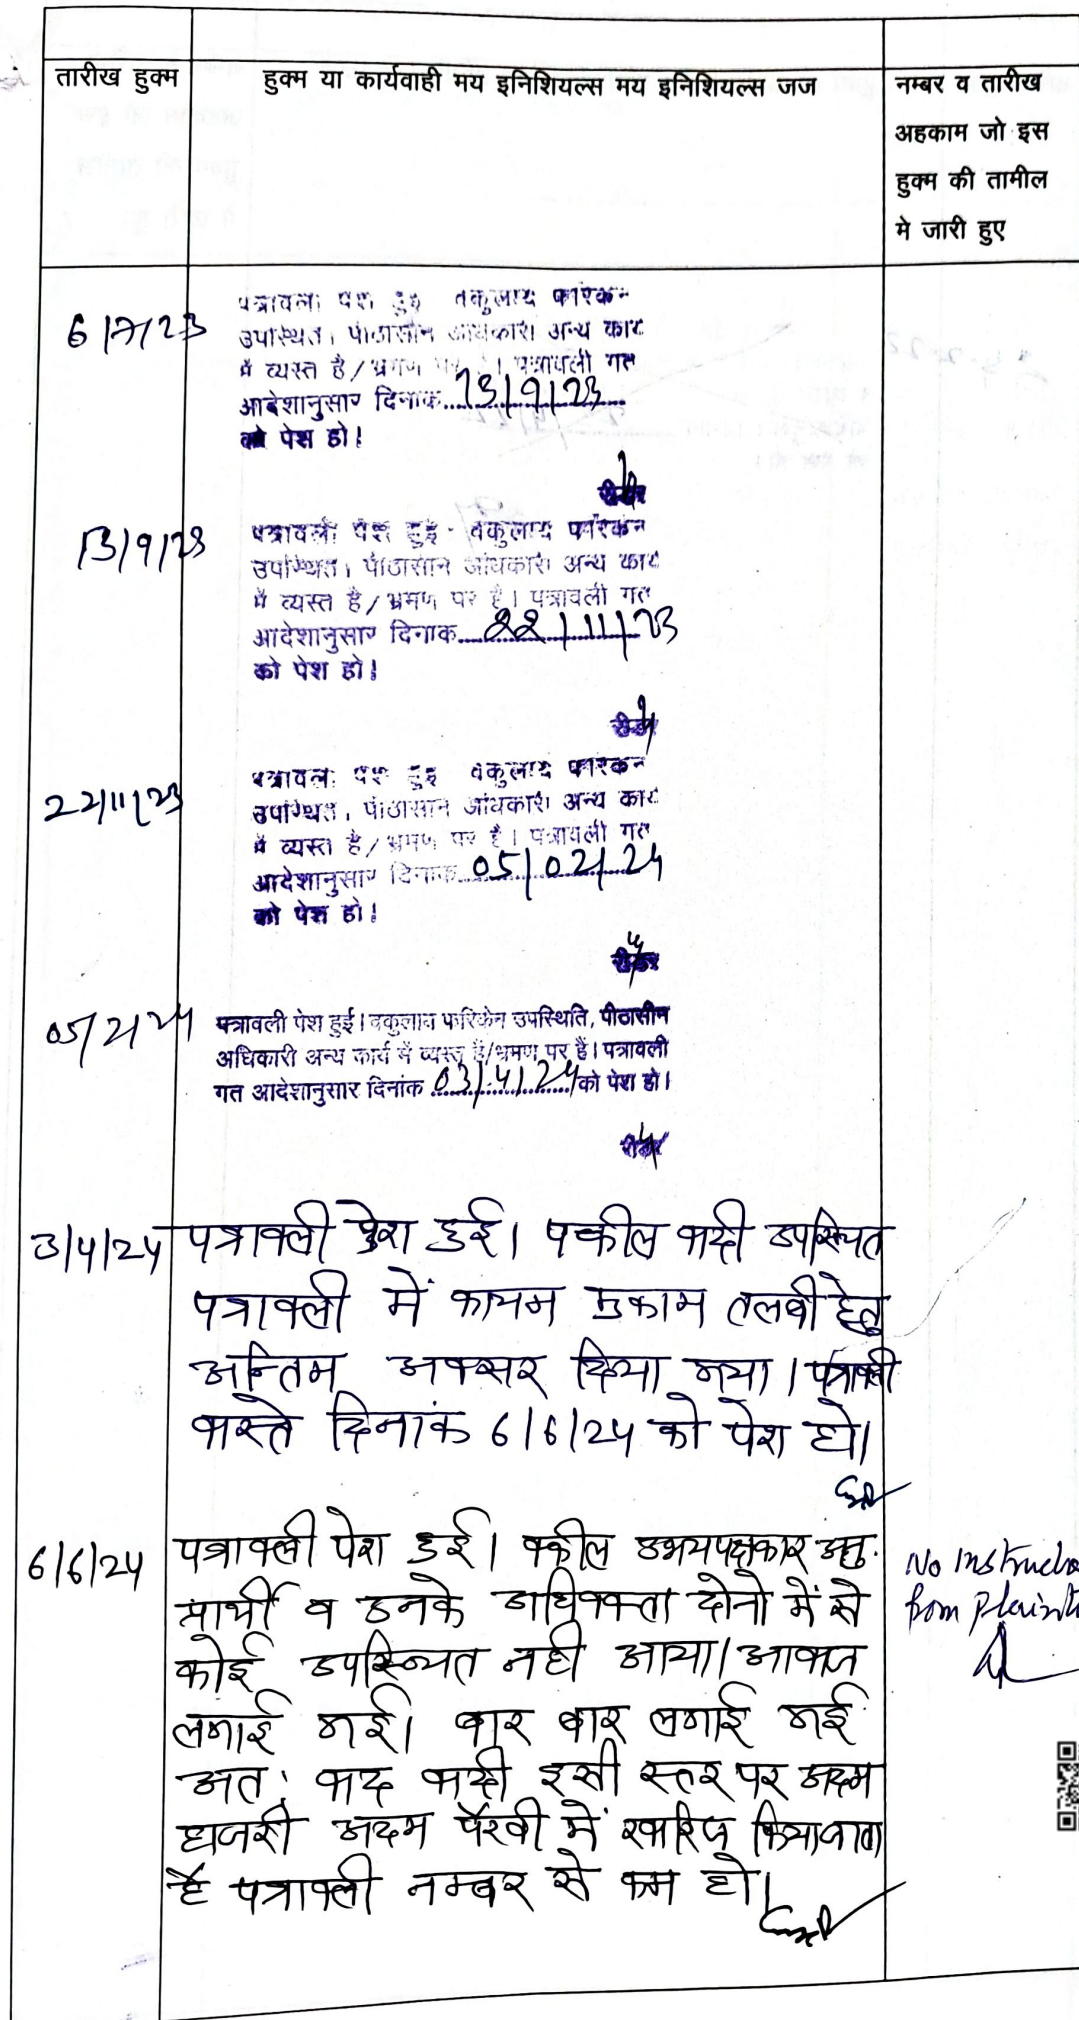 तारीख हुक्म
हुक्म या कार्यवाही मय इनिशियल्स मय इनिशियल्स जज
नम्बर व तारीख
अहकाम जो इस
हुक्म की तामील
मे जारी हुए
6/7/23
पत्रावली पेश हुई वकुलाय फरिकेन
उपस्थित। पीठासीन अधिकारी अन्य कार्य
में व्यस्त है/भ्रमण पर है। पत्रावली गत
आदेशानुसार दिनाक 13/9/23
को पेश हो।
रीडर
13/9/23
पत्रावली पेश हुई वकुलाय फरिकेन
उपस्थित। पीठासीन अधिकारी अन्य कार्य
में व्यस्त है/भ्रमण पर है। पत्रावली गत
आदेशानुसार दिनाक 22/11/23
को पेश हो।
रीडर
22/11/23
पत्रावली पेश हुई वकुलाय फरिकेन
उपस्थित। पीठासीन अधिकारी अन्य कार्य
में व्यस्त है/भ्रमण पर है। पत्रावली गत
आदेशानुसार दिनाक 05/02/24
को पेश हो।
रीडर
05/2/24
पत्रावली पेश हुई। वकुलाय फरिकेन उपस्थिति, पीठासीन
अधिकारी अन्य कार्य में व्यस्त हैं/भ्रमण पर हैं। पत्रावली
गत आदेशानुसार दिनांक 03/4/24 को पेश हो।
रीडर
3/4/24
पत्रावली पेश हुई। वकील वादी उपस्थित
पत्रावली में कायम मुकाम तलबी हेतु
अन्तिम अवसर दिया गया। पत्रावली
वास्ते दिनांक 6/6/24 को पेश हो।
6/6/24
पत्रावली पेश हुई। वकील उभयपक्षकार अनु.
प्रार्थी व उनके अधिवक्ता दोनो में से
कोई उपस्थित नही आया। आवाज
लगाई गई। बार बार लगाई गई
अतः वाद वादी इसी स्तर पर अदम
हाजरी अदम पैरवी में खारिज किया जाता
है पत्रावली नम्बर से कम हो।
No Instructio
from Plaint